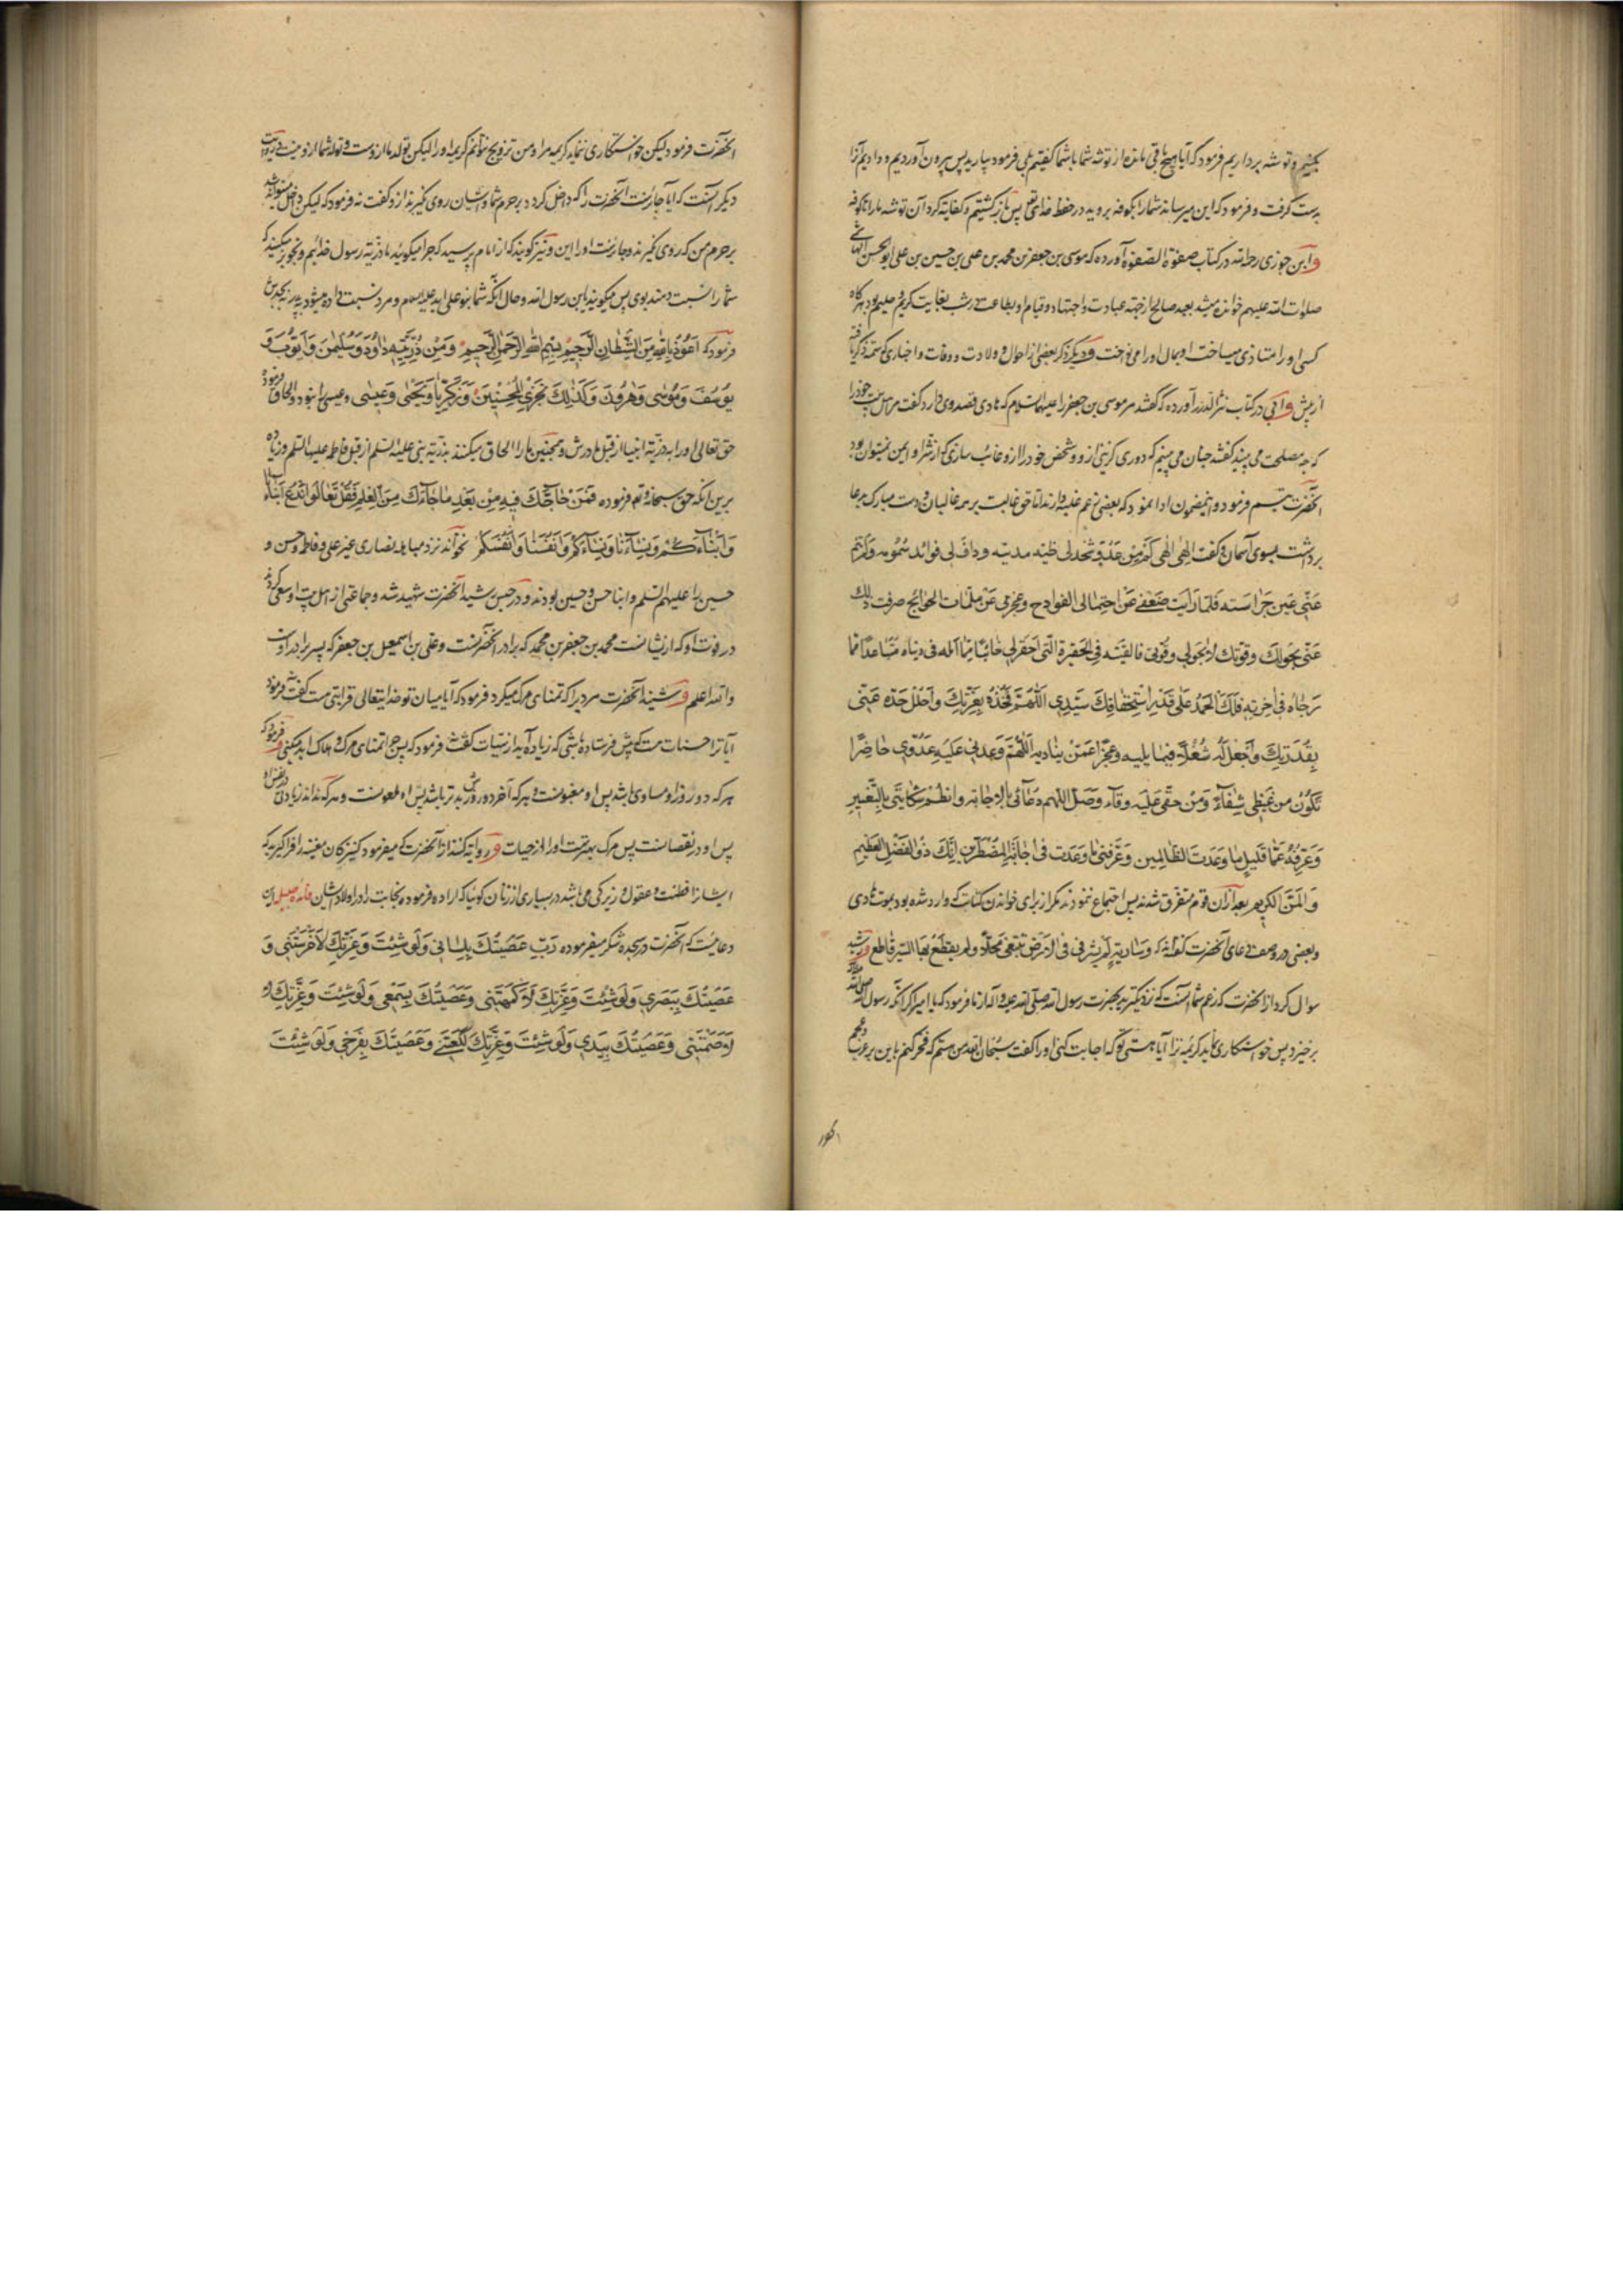 بکنیم و توشه برداریم فرمود که آیا هیچ باقی مانده از توشه شما باشما گفتیم بلی فرمود بیارید پس بیرون آوردیم و دادیم آنرا
بدست گرفت و فرمود که این میرساند شمارا بکوفه بروید در حفظ خدای تعالی پس بازگشتیم و کفایت کرد آن توشه مارا تا کوفه
و ابن جوزی رحمه الله در کتاب صفوة الصفوة آورده که موسی بن جعفر بن محمد بن علی بن حسین بن علی ابو الحسن الهاشمی
صلوات الله علیهم خوانده میشد بعبد صالح از جهة عبادت و اجتهاد و قیام او بطاعت در شب بغایت کریم و حلیم بود هرگاه
کسی او را متاذی میساخت او بمال او را می نوخت و دیگر ذکر بعضی از احوال و ولادت و وفات و اخباری که سمت ذکر یافته
از پیش و آبی در کتاب نثر الدرر آورده که گفتند مر موسی بن جعفر را علیهما السلام که هادی قصد وی دارد گفت مر اهل بیت خود را
که چه مصلحت می بینید گفتند چنان می بینیم که دوری گزینی از و و شخص خود را ازو غائب سازی که از شر او ایمن نمیتوان بود
آنحضرت تبسم فرمود و اینمضمون ادا نمود که بعضی بزعم غلبه دارند اما حق غالبست بر همه غالبان و دست مبارک بدعا
برداشت بسوی آسمان و گفت الهی الهی کم من عدو شحذ لی ظبة مدیته و داف لی قواتل سمومه ولم تنم
عنی عین حراسته فلما رأیت ضعفی عن احتمال الفوادح و عجزی عن ملمات الحوائج صرفت ذلک
عنی بحولک و قوتک لا بحولی و قوتی فالقیته فی الحفیرة التی احتفر لی خائبا مما امله فی دنیاه متباعدا مما
رجاه فی اخرته فلک الحمد علی قدر استحقاقک سیدی اللهم فخذه بعزتک و احلل حده عنی
بقدرتک و اجعل له شغلا فیما یلیه و عجزا عمن ینادیه اللهم وعدنی علیه عدوی حاضرا
تکون من غیظی شفاء و من حقی علیه وقاء و صل اللهم دعائی بالاجابة و انظم شکایتی بالتغییر
و عرفه عما قلیل ما وعدت الظالمین و عرفنی ما وعدت فی اجابة المضطرین انک ذو الفضل العظیم
و المن الکریم بعد ازان قوم متفرق شدند پس اجتماع ننمودند مگر از برای خواندن کتابت که وارد شده بود بموت هادی
و بعضی در وصف دعای آنحضرت گفته اند که و ساریة لم تسر فی الارض تبتغی محلا ولم یقطع بها السیر قاطع و رشید
سوال کرد از آنحضرت که زعم شما آنست که نزدیکترید بحضرت رسول الله صلی الله علیه و آله از ما فرمود که یا امیر اگر آنکه رسول الله صلی الله
برخیزد پس خواستگاری نماید کریمه ترا آیا هستی تو که اجابت کنی او را گفت سبحان الله من هستم که فخر کنم باین بر عرب و عجم
آنحضرت فرمود لیکن خواستگاری ننماید کریمه مرا و من تزویج نتوانم کریمه او را لیکن تولد ما از وست و تولد شما ازو نیست و روایت
دیگر آنست که آیا جائزست آنحضرت را که داخل گردد بر حرم شما و ایشان روی نگیرند ازو گفت نه فرمود که لیکن داخل میتواند شد
بر حرم من که روی نگیرند و جائزست او را این و نیز گویند که از امام پرسید که چرا میگوئید ما ذریة رسول خدائیم و تجویز میکنید که
شما را نسبت دهند بوی پس میگویند یا بن رسول الله و حال آنکه شما بنو علی اید علیه السلام و مرد نسبت داده میشود به پدر نه بجد
فرمود که اعوذ بالله من الشیطان الرجیم بسم الله الرحمن الرحیم و من ذریته داود و سلیمن و ایوب و
یوسف و موسی و هرون و کذلک نجزی المحسنین و زکریا و یحیی و عیسی و عیسی را نبود
حق تعالی او را بذریة انبیا از قبل مادرش و همچنین ما را الحاق میکنند بذریة نبی علیه السلم از قبل فاطمه علیها السلم و زیاده
برین آنکه حق سبحانه و تعالی فرموده فمن حاجک فیه من بعد ما جاءک من العلم فقل تعالوا ندع ابناءنا
و ابناءکم و نساءنا و نساءکم و انفسنا و انفسکم نخواند نزد مباهله نصاری غیر علی و فاطمه و حسن و
حسین را علیهم السلم و ابنا حسن و حسین بودند و در حبس رشید آنحضرت شهید شد و جماعتی از اهل بیت او سعی کردند
در فوت او که از ایشانست محمد بن جعفر بن محمد که برادر آنحضرتست و علی بن اسمعیل بن جعفر که پسر برادر اوست
و الله اعلم و شنید آنحضرت مردیرا که تمنای مرگ میکرد فرمود که آیا میان تو و خدایتعالی قرابتی هست گفت نه فرمود
آیا ترا حسنات هست که پیش فرستاده باشی که زیاده آید از سیئات گفت نه فرمود که پس چرا تمنای مرگ و هلاک ابد میکنی و فرمود که
هر که دو روز او مساوی باشد پس او مغبونست و هر که آخر دو روزش بدتر باشد پس او ملعونست و هر که نداند زیادتی در نفس او
پس او در نقصانست پس مرگ بهترست او را از حیات و روایت کنند از آنحضرت که میفرمود کنیزکان مغنیه را فرا گیرید که
ایشانرا فطنت و عقول و زیرکی می باشد در بسیاری از زنان گوئیا که اراده فرموده نجابت را در اولاد ایشان فائده جلیله این
دعائیست که آنحضرت در سجده شکر میفرموده رب عصیتک بلسانی ولو شئت و عزتک لاخرستنی و
عصیتک ببصری ولو شئت و عزتک لاکمهتنی و عصیتک بسمعی ولو شئت و عزتک
لاصممتنی و عصیتک بیدی ولو شئت و عزتک لکنعتنی و عصیتک بفرجی ولو شئت